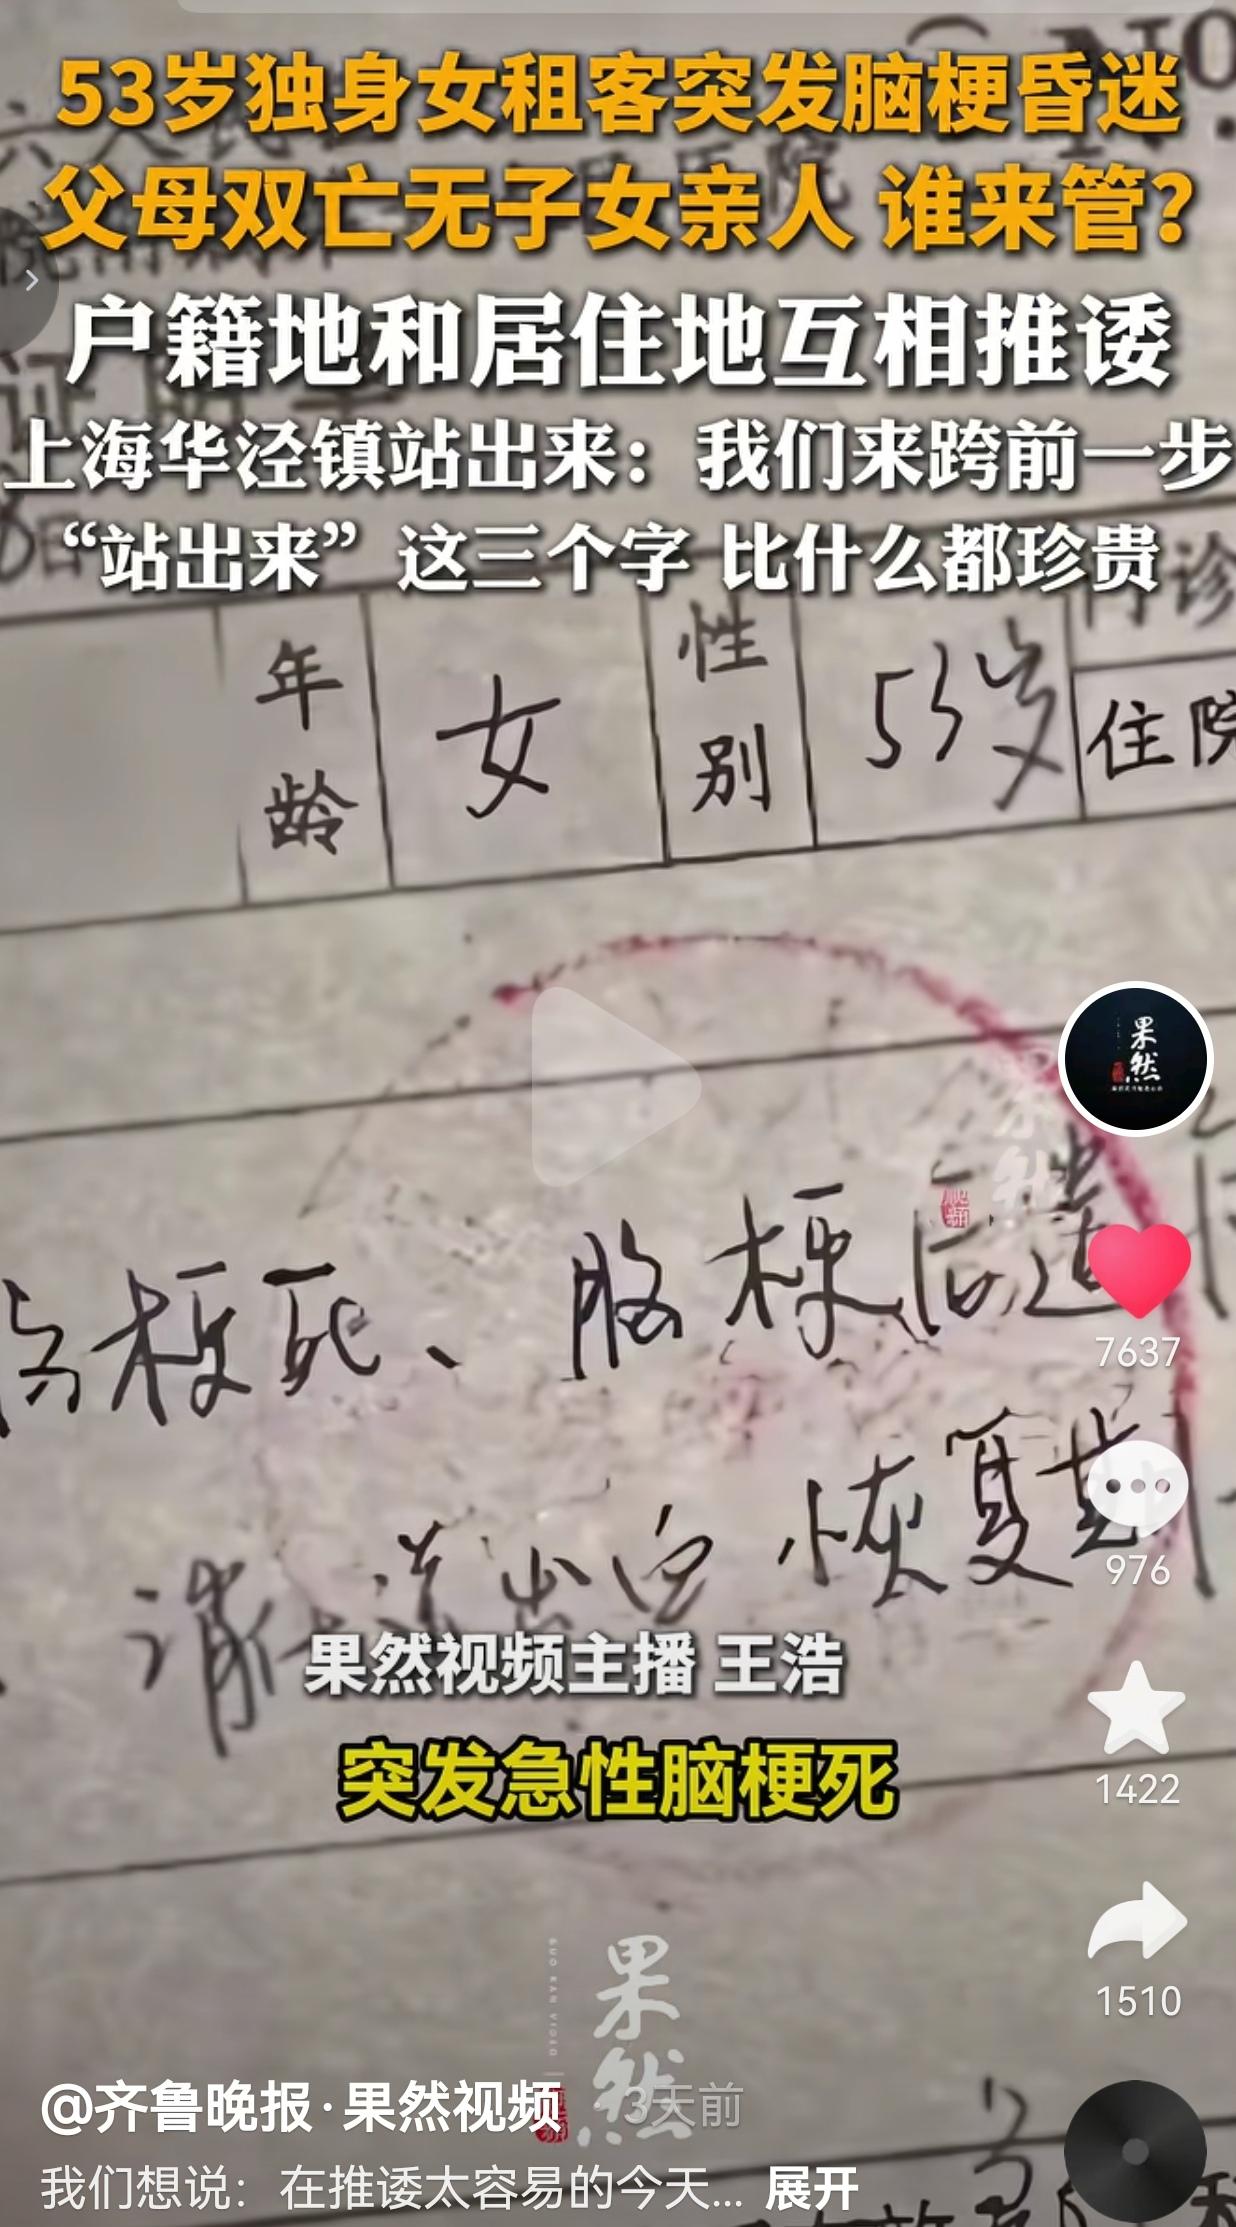 NO.
53岁独身女租客突发脑梗昏迷
父母双亡无子女亲人 谁来管?
户籍地和居住地互相推诿
上海华泾镇站出来：我们来跨前一步
“站出来”这三个字 比什么都珍贵
年龄
女
性别
53岁
门诊
住院
果然
梗死、脑梗后遗
恢复期
果然视频主播 王浩
突发急性脑梗死
7637
976
1422
1510
果然
GUO RAN VIDEO
@齐鲁晚报·果然视频 · 3天前
我们想说：在推诿太容易的今天... 展开